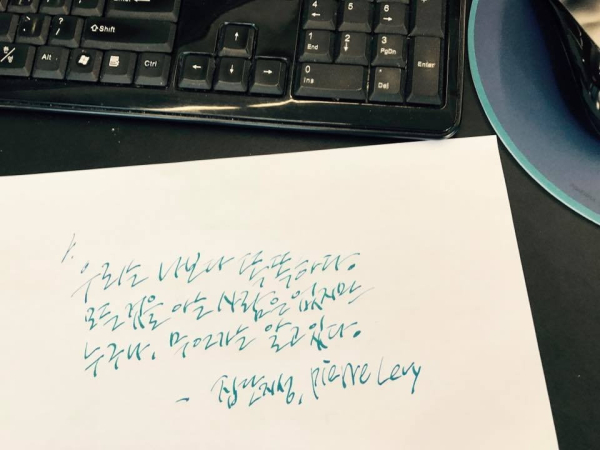 Shift
Alt
Ctrl
4
6
1
End
2
3
PgDn
Enter
0
Ins
.
Del
1.
우리는 나보다 똑똑하다.
모든 것을 아는 사람은 없지만
누구나, 무언가는 알고 있다.
- 집단지성, pierre Levy